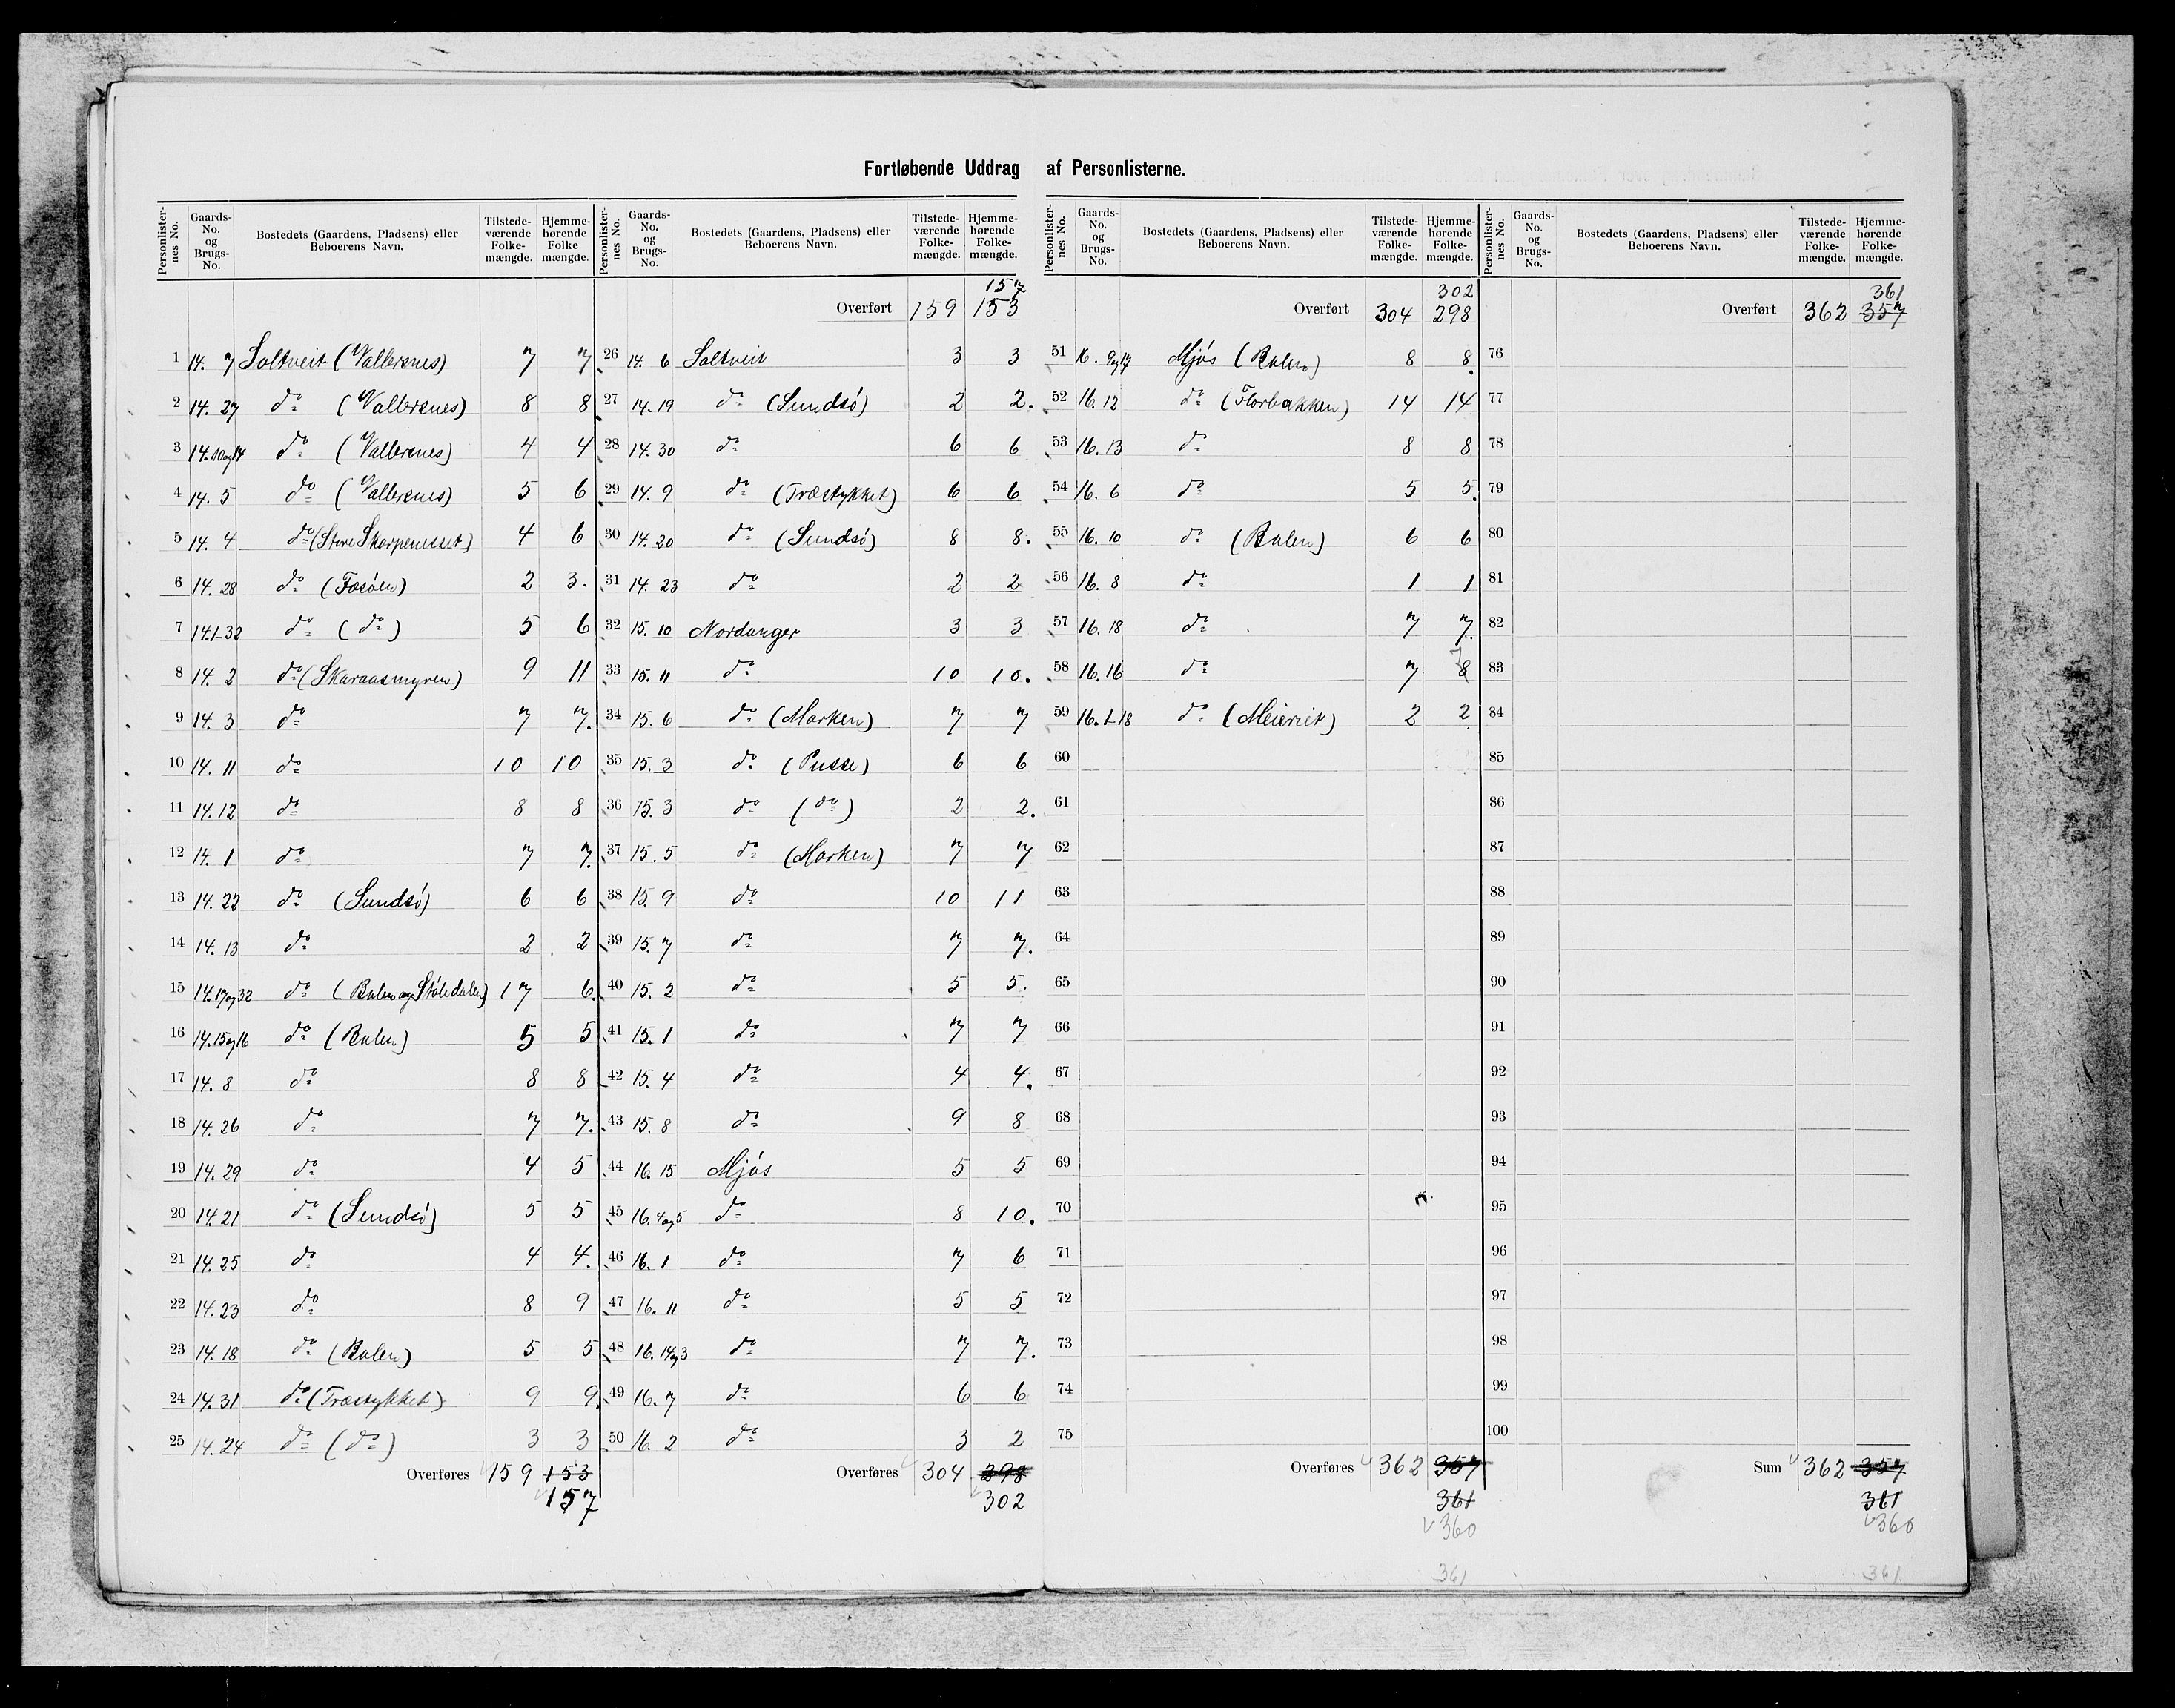 Fortløbende Uddrag af Personlisterne.
Personlisternes No. Gaards-No. og Brugs-No. Bostedets (Gaardens, Pladsens) eller Beboerens Navn. Tilstedeværende Folkemængde. Hjemmehørende Folkemængde.
1 14. 7 Soltveit (Vallersnes) 7 7
2 14. 27 do (Vallersnes) 8 8
3 14. 10 og 14 do (Vallersnes) 4 4
4 14. 5 do (Vallersnes) 5 6
5 14. 4 do (Store Skarpenesset) 4 6
6 14. 28 do (Fosøen) 2 3.
7 14.1-32 do (do) 5 6
8 14. 2 do (Skaraasmyren) 9 11
9 14. 3 do 7 7.
10 14. 11 do 10 10
11 14. 12 do 8 8
12 14. 1 do 7 7.
13 14. 22 do (Sundsø) 6 6
14 14. 13 do 2 2
15 14. 17 og 32 do (Balen og Stølsdalen) 17 6.
16 14. 15 og 16 do (Balen) 5 5
17 14. 8 do 8 8
18 14. 26 do 7 7.
19 14. 29 do 4 5
20 14. 21 do (Sundsø) 5 5
21 14. 25 do 4 4.
22 14. 23 do 8 9
23 14. 18 do (Balen) 5 5
24 14. 31 do (Træstykket) 9 9
25 14. 24 do (do) 3 3
Overføres 159 153
157
157
Overført 159 153
26 14. 6 Soltveit 3 3
27 14. 19 do (Sundsø) 2 2.
28 14. 30 do 6 6
29 14. 9 do (Træstykket) 6 6
30 14. 20 do (Sundsø) 8 8.
31 14. 23 do 2 2
32 15. 10 Nordanger 3 3
33 15. 11 do 10 10.
34 15. 6 do (Marken) 7 7
35 15. 3 do (Pusse) 6 6
36 15. 3 do (do) 2 2.
37 15. 5 do (Marken) 7 7
38 15. 9 do 10 11
39 15. 7 do 7 7.
40 15. 2 do 5 5.
41 15. 1 do 7 7
42 15. 4 do 4 4.
43 15. 8 do 9 8
44 16. 15 Mjøs 5 5
45 16. 4 og 5 do 8 10.
46 16. 1 do 7 6
47 16. 11 do 5 5
48 16. 14 og 3 do 7 7.
49 16. 7 do 6 6
50 16. 2 do 3 2
Overføres 304 298
302
302
Overført 304 298
51 16. 9 og 17 Mjøs (Balen) 8 8.
52 16. 12 do (Florbakken) 14 14
53 16. 13 do 8 8
54 16. 6 do 5 5.
55 16. 10 do (Balen) 6 6
56 16. 8 do 1 1
57 16. 18 do 7 7.
58 16. 16 do 7 8 7
59 16. 1-18 do (Meieriet) 2 2
60
61
62
63
64
65
66
67
68
69
70
71
72
73
74
75
Overføres 362 357
361
360
361
361
Overført 362 357
76
77
78
79
80
81
82
83
84
85
86
87
88
89
90
91
92
93
94
95
96
97
98
99
100
Sum 362 357
361
360
361